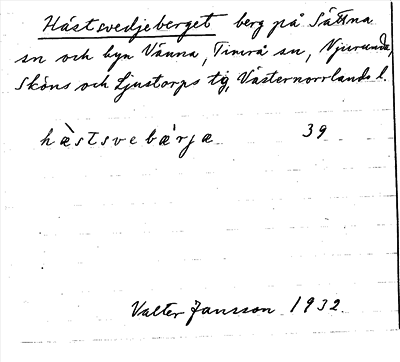 Hästsvedjeberget berg på Sättna
sn och byn Vänna, Timrå sn, Njurunda,
Sköns och Ljustorps tg, Västernorrlands l.
hästsvebärja 39
Valter Jansson 1932.